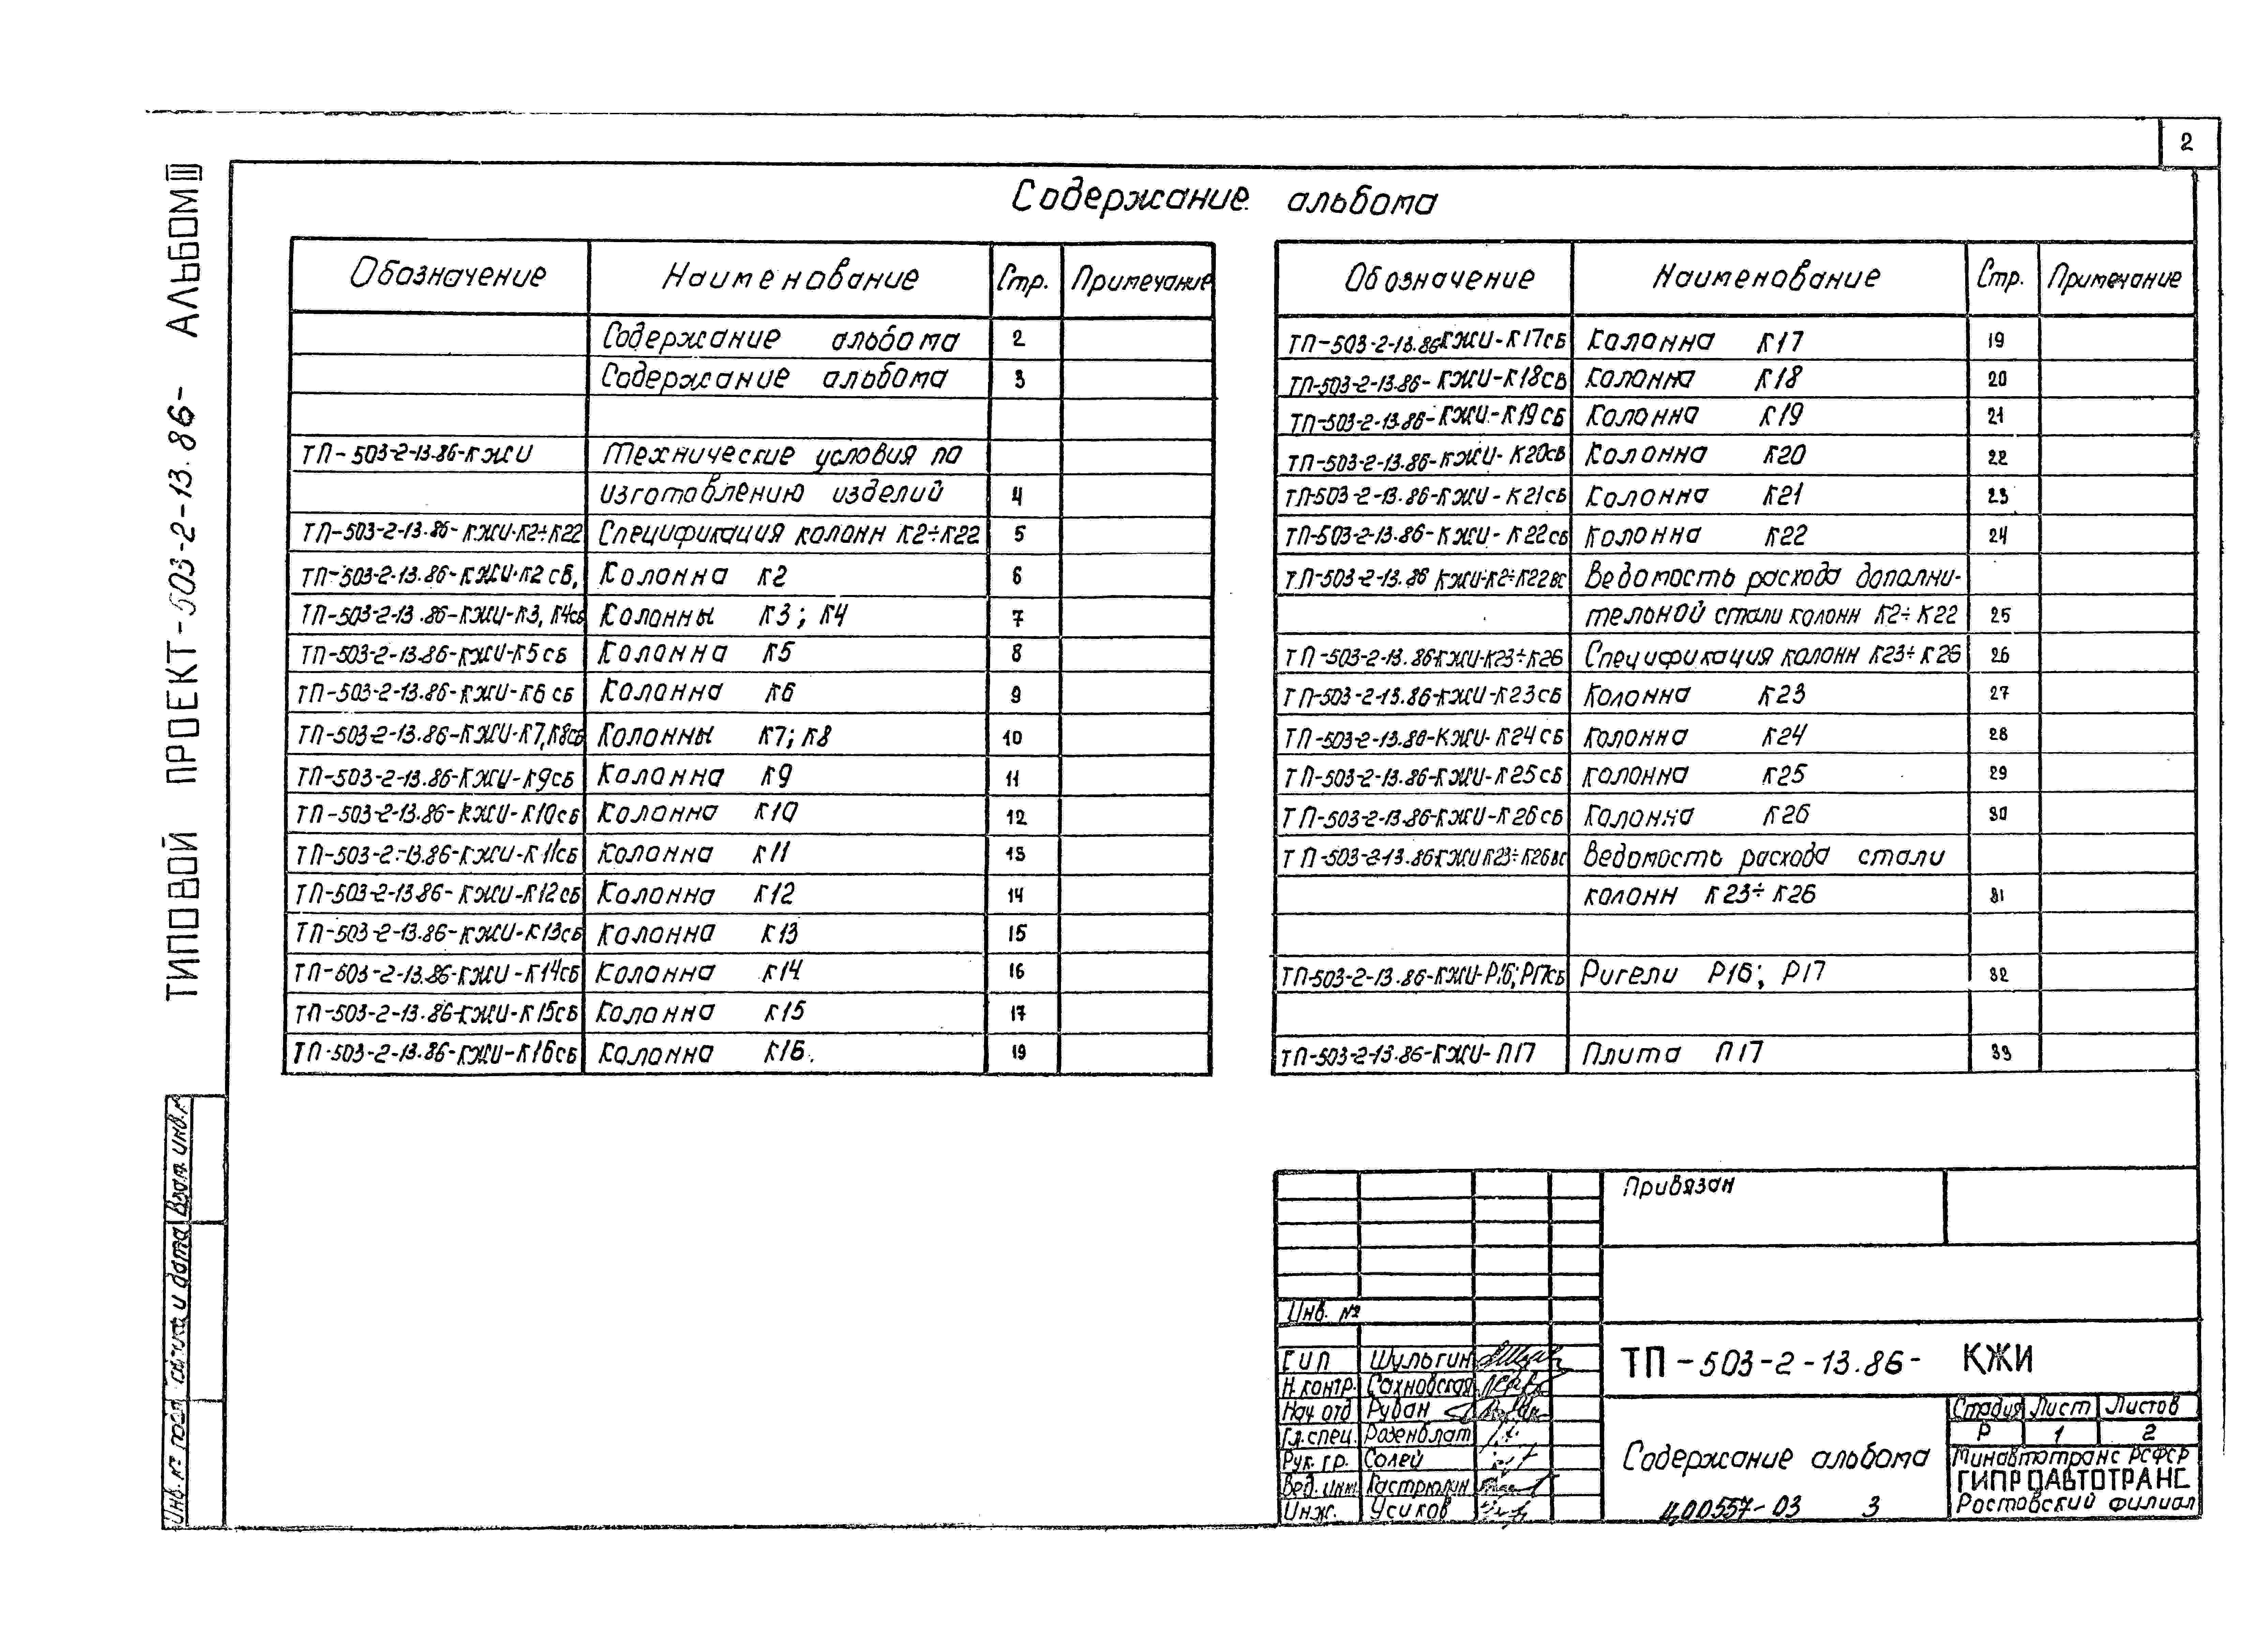 2
ТИПОВОЙ ПРОЕКТ-503-2-13.86- АЛЬБОМ III
Содержание альбома
Обозначение Наименование Стр. Примечание
Содержание альбома 2
Содержание альбома 3
ТП-503-2-13.86-КЖИ Технические условия по
изготовлению изделий 4
ТП-503-2-13.86-КЖИ-К2÷К22 Спецификация колонн К2÷К22 5
ТП-503-2-13.86-КЖИ-К2сб, Колонна К2 6
ТП-503-2-13.86-КЖИ-К3, К4сб Колонны К3; К4 7
ТП-503-2-13.86-КЖИ-К5сб Колонна К5 8
ТП-503-2-13.86-КЖИ-К6сб Колонна К6 9
ТП-503-2-13.86-КЖИ-К7,К8сб Колонны К7; К8 10
ТП-503-2-13.86-КЖИ-К9сб Колонна К9 11
ТП-503-2-13.86-КЖИ-К10сб Колонна К10 12
ТП-503-2-13.86-КЖИ-К11сб Колонна К11 13
ТП-503-2-13.86-КЖИ-К12сб Колонна К12 14
ТП-503-2-13.86-КЖИ-К13сб Колонна К13 15
ТП-503-2-13.86-КЖИ-К14сб Колонна К14 16
ТП-503-2-13.86-КЖИ-К15сб Колонна К15 17
ТП-503-2-13.86-КЖИ-К16сб Колонна К16. 19
Обозначение Наименование Стр. Примечание
ТП-503-2-13.86КЖИ-К17сб Колонна К17 19
ТП-503-2-13.86-КЖИ-К18сб Колонна К18 20
ТП-503-2-13.86-КЖИ-К19сб Колонна К19 21
ТП-503-2-13.86-КЖИ-К20сб Колонна К20 22
ТП-503-2-13.86-КЖИ-К21сб Колонна К21 23
ТП-503-2-13.86-КЖИ-К22сб Колонна К22 24
ТП-503-2-13.86 КЖИ-К2÷К22вс Ведомость расхода дополни-
тельной стали колонн К2÷К22 25
ТП-503-2-13.86КЖИ-К23÷К26 Спецификация колонн К23÷К26 26
ТП-503-2-13.86-КЖИ-К23сб Колонна К23 27
ТП-503-2-13.86-КЖИ-К24сб Колонна К24 28
ТП-503-2-13.86-КЖИ-К25сб Колонна К25 29
ТП-503-2-13.86-КЖИ-К26сб Колонна К26 30
ТП-503-2-13.86КЖИК23÷К26вс Ведомость расхода стали
колонн К23÷К26 31
ТП-503-2-13.86-КЖИ-Р16; Р17сб Ригели Р16; Р17 32
ТП-503-2-13.86-КЖИ-П17 Плита П17 33
Взам. инв.
и дата
Инв. № подл
Привязан
Инв. №
ГИП Шульгин
Н.контр. Сахновская
Нач отд Рубан
Гл.спец. Розенблат
Рук.гр. Солей
Вед.инж. Кастрюлин
Инж. Усиков
ТП-503-2-13.86- КЖИ
Содержание альбома
Стадия Лист Листов
Р 1 2
Минавтотранс РСФСР
ГИПРОАВТОТРАНС
Ростовский филиал
Ц00557-03 3